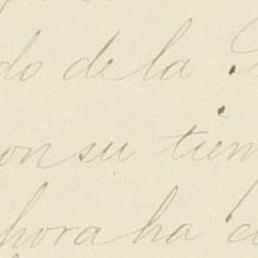 do de la
con su tiem
hora ha